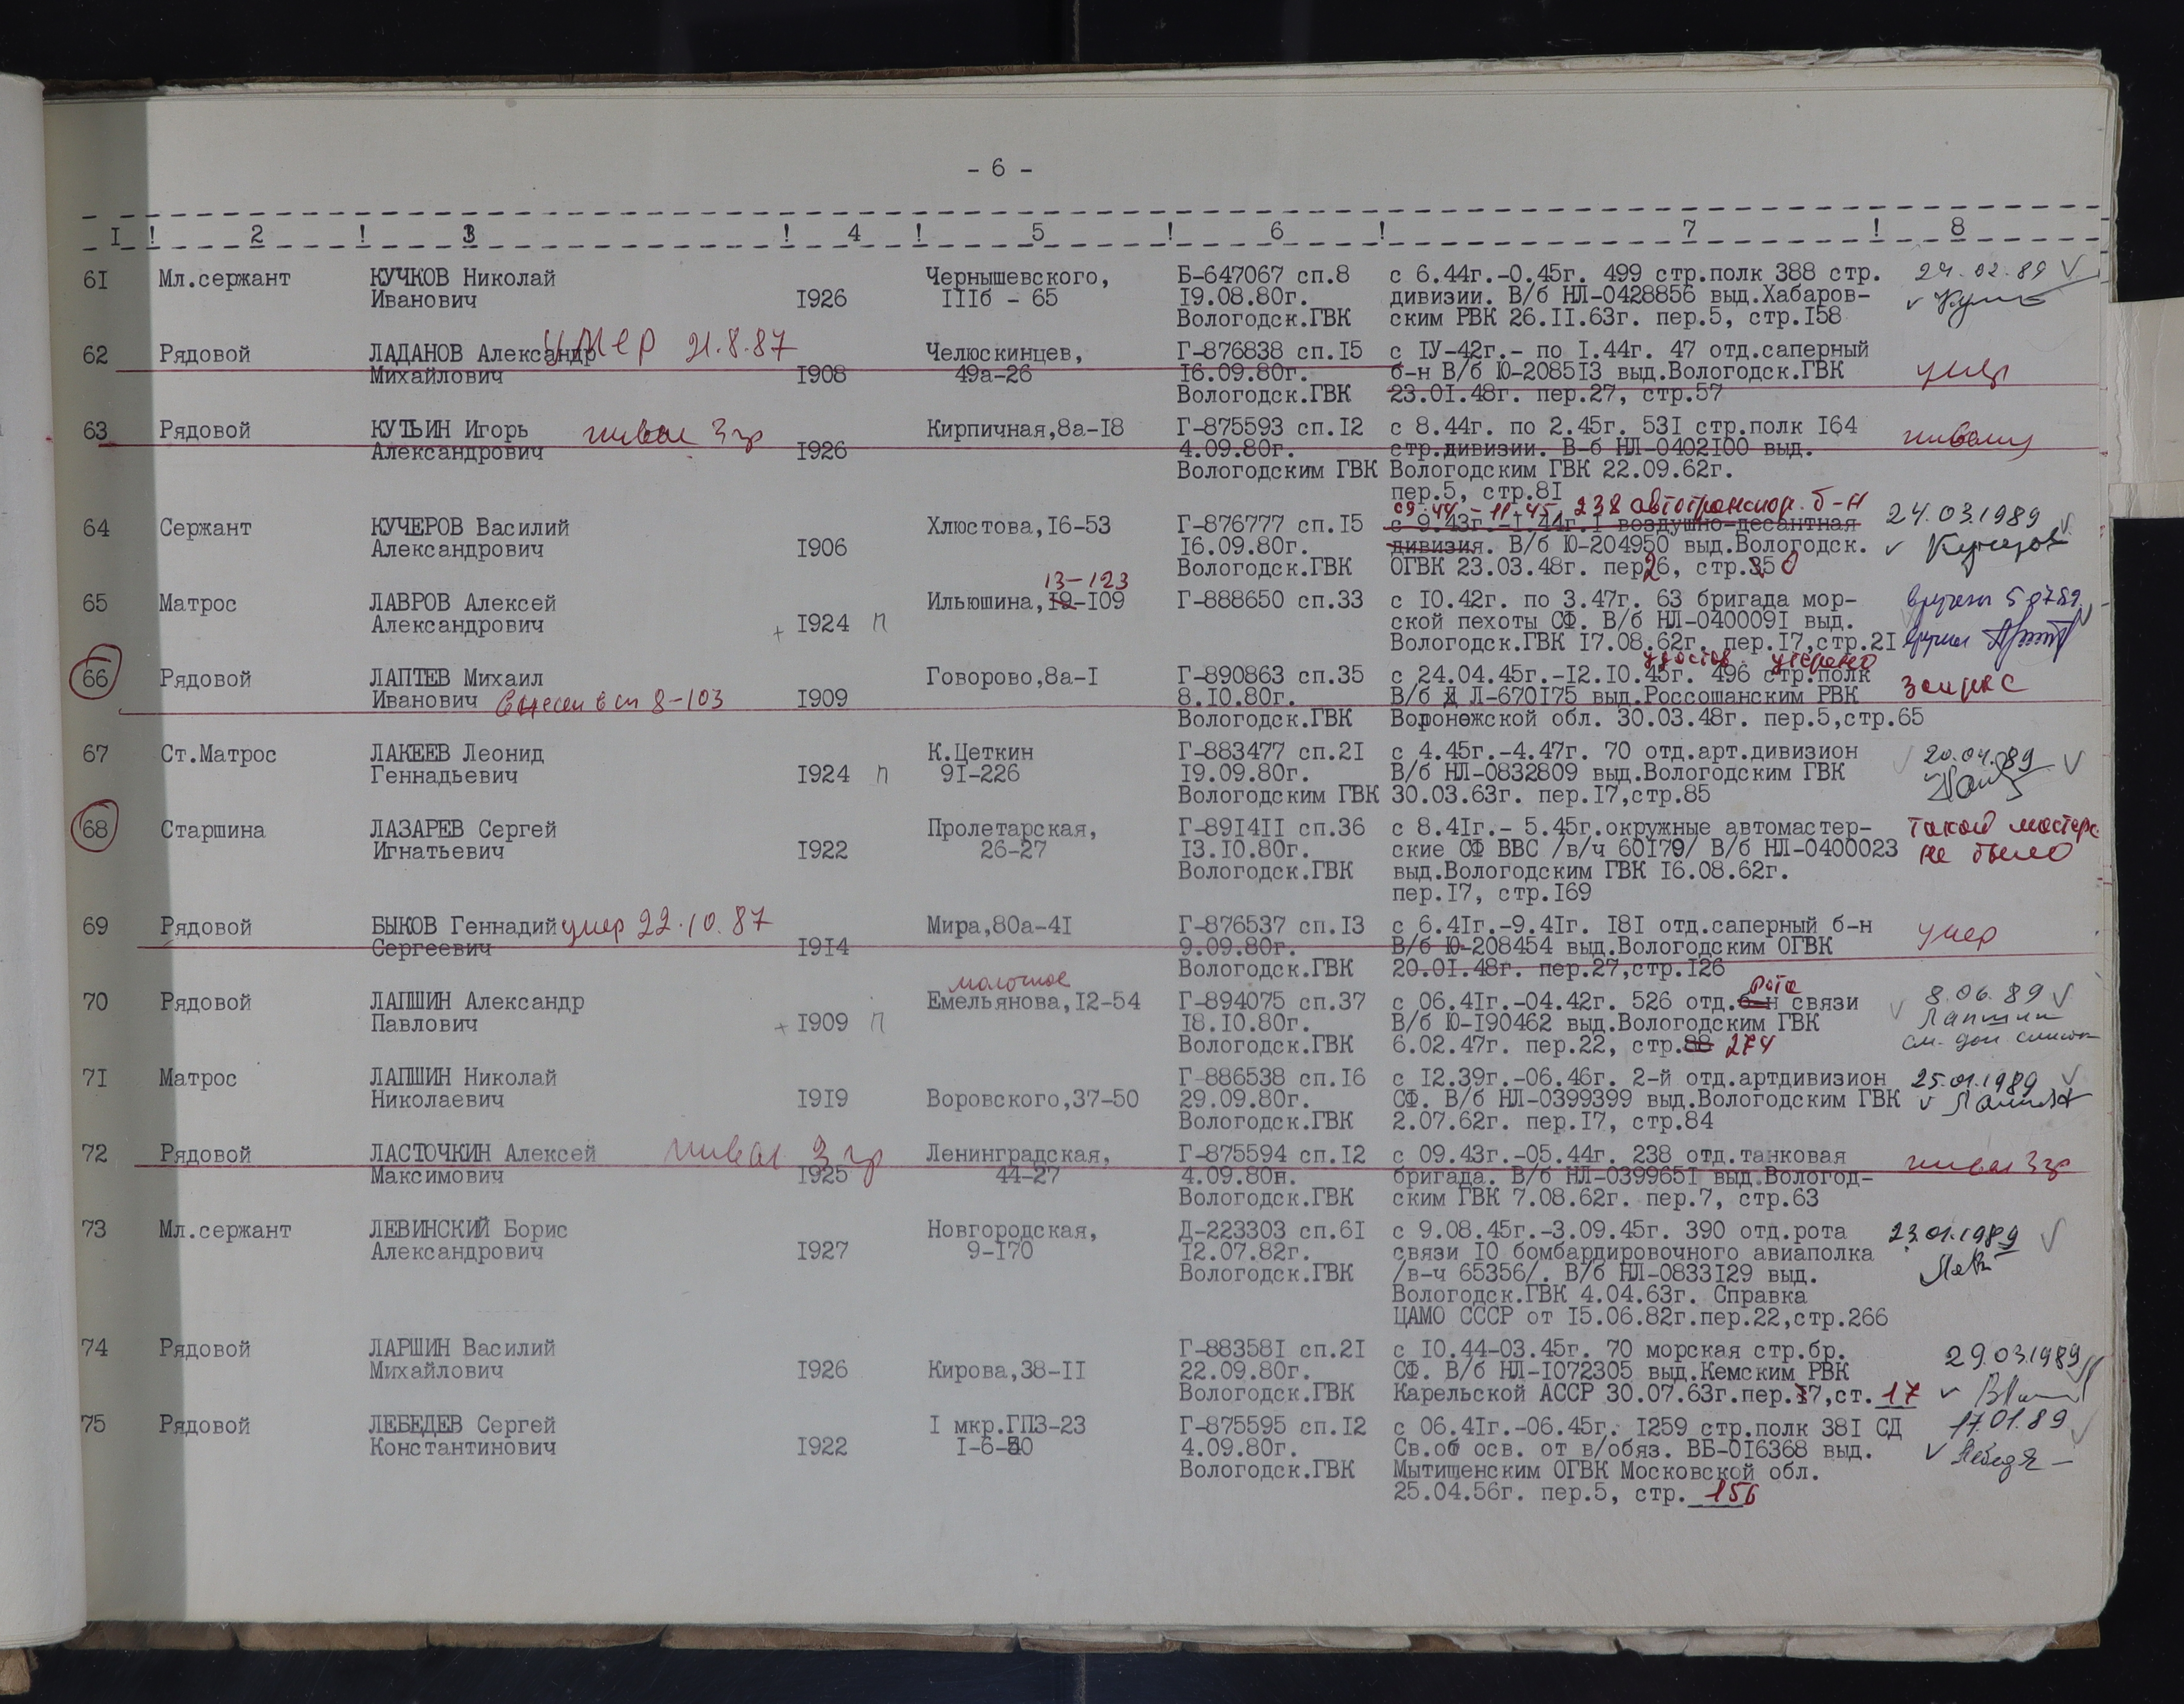 - 6 -
I ! 2 ! 3 ! 4 ! 5 ! 6 ! 7 ! 8
61 Мл.сержант КУЧКОВ Николай Чернышевского, Б-647067 сп.8 с 6.44г.-0.45г. 499 стр.полк 388 стр. 24.02.89 V
Иванович I926 IIIб - 65 I9.08.80г. дивизии. В/б НЛ-0428856 выд.Хабаров-
Вологодск.ГВК ским РВК 26.II.63г. пер.5, стр.I58
умер 21.8.87
62 Рядовой ЛАДАНОВ Александр Челюскинцев, Г-876838 сп.I5 с IУ-42г.- по I.44г. 47 отд.саперный
Михайлович I908 49а-26 I6.09.80г. б-н В/б Ю-2085I3 выд.Вологодск.ГВК умер
Вологодск.ГВК 23.0I.48г. пер.27, стр.57
63 Рядовой КУТЬИН Игорь инвал 3 гр Кирпичная,8а-I8 Г-875593 сп.I2 с 8.44г. по 2.45г. 53I стр.полк I64
Александрович I926 4.09.80г. стр.дивизии. В-б НЛ-0402I00 выд.
Вологодским ГВК Вологодским ГВК 22.09.62г.
пер.5, стр.8I
09.44 - 11.45, 238 автотранспор. б-н
64 Сержант КУЧЕРОВ Василий Хлюстова,I6-53 Г-876777 сп.I5 с 9.43г.-I.44г.I воздушно-десантная 24.03.1989
Александрович I906 I6.09.80г. дивизия. В/б Ю-204950 выд.Вологодск. V Кучеров
Вологодск.ГВК ОГВК 23.03.48г. пер26, стр.350
13-123
65 Матрос ЛАВРОВ Алексей Ильюшина,I9-I09 Г-888650 сп.33 с I0.42г. по 3.47г. 63 бригада мор- 5 07 89
Александрович + I924 п ской пехоты СФ. В/б НЛ-040009I выд.
Вологодск.ГВК I7.08.62г. пер.I7,стр.2I
удостов. утеряно
66 Рядовой ЛАПТЕВ Михаил Говорово,8а-I Г-890863 сп.35 с 24.04.45г.-I2.I0.45г. 496 стр.полк
Иванович внесен в сп 8-103 I909 8.I0.80г. В/б Л-670I75 выд.Россошанским РВК
Вологодск.ГВК Воронежской обл. 30.03.48г. пер.5,стр.65
67 Ст.Матрос ЛАКЕЕВ Леонид К.Цеткин Г-883477 сп.2I с 4.45г.-4.47г. 70 отд.арт.дивизион 20.04.89 V
Геннадьевич I924 п 9I-226 I9.09.80г. В/б НЛ-0832809 выд.Вологодским ГВК
Вологодским ГВК 30.03.63г. пер.I7,стр.85
68 Старшина ЛАЗАРЕВ Сергей Пролетарская, Г-89I4II сп.36 с 8.4Iг.- 5.45г.окружные автомастер- такой мастерс.
Игнатьевич I922 26-27 I3.I0.80г. ские СФ ВВС /в/ч 60I79/ В/б НЛ-0400023 не было
Вологодск.ГВК выд.Вологодским ГВК I6.08.62г.
пер.I7, стр.I69
69 Рядовой БЫКОВ Геннадий умер 22.10.87 Мира,80а-4I Г-876537 сп.I3 с 6.4Iг.-9.4Iг. I8I отд.саперный б-н умер
Сергеевич I9I4 9.09.80г. В/б Ю-208454 выд.Вологодским ОГВК
Вологодск.ГВК 20.0I.48г. пер.27,стр.I26
молочное рота
70 Рядовой ЛАПШИН Александр Емельянова,I2-54 Г-894075 сп.37 с 06.4Iг.-04.42г. 526 отд.б-н связи 8.06.89 V
Павлович + I909 п I8.I0.80г. В/б Ю-I90462 выд.Вологодским ГВК V Лапшин
Вологодск.ГВК 6.02.47г. пер.22, стр.88 274 см. доп. список
7I Матрос ЛАПШИН Николай Г-886538 сп.I6 с I2.39г.-06.46г. 2-й отд.артдивизион 25.01.1989 V
Николаевич I9I9 Воровского,37-50 29.09.80г. СФ. В/б НЛ-0399399 выд.Вологодским ГВК
Вологодск.ГВК 2.07.62г. пер.I7, стр.84
72 Рядовой ЛАСТОЧКИН Алексей инвал 3 гр Ленинградская, Г-875594 сп.I2 с 09.43г.-05.44г. 238 отд.танковая инвал 3 гр
Максимович I925 44-27 4.09.80н. бригада. В/б НЛ-039965I выд.Вологод-
Вологодск.ГВК ским ГВК 7.08.62г. пер.7, стр.63
73 Мл.сержант ЛЕВИНСКИЙ Борис Новгородская, Д-223303 сп.6I с 9.08.45г.-3.09.45г. 390 отд.рота 23.01.1989 V
Александрович I927 9-I70 I2.07.82г. связи I0 бомбардировочного авиаполка
Вологодск.ГВК /в-ч 65356/. В/б НЛ-0833I29 выд.
Вологодск.ГВК 4.04.63г. Справка
ЦАМО СССР от I5.06.82г.пер.22,стр.266
74 Рядовой ЛАРШИН Василий Г-88358I сп.2I с I0.44-03.45г. 70 морская стр.бр. 29.03.1989
Михайлович I926 Кирова,38-II 22.09.80г. СФ. В/б НЛ-I072305 выд.Кемским РВК
Вологодск.ГВК Карельской АССР 30.07.63г.пер.I7,ст. 17
75 Рядовой ЛЕБЕДЕВ Сергей I мкр.ГПЗ-23 Г-875595 сп.I2 с 06.4Iг.-06.45г. I259 стр.полк 38I СД 17.01.89
Константинович I922 I-6-50 4.09.80г. Св.об осв. от в/обяз. ВБ-0I6368 выд.
Вологодск.ГВК Мытищенским ОГВК Московской обл.
25.04.56г. пер.5, стр. 156